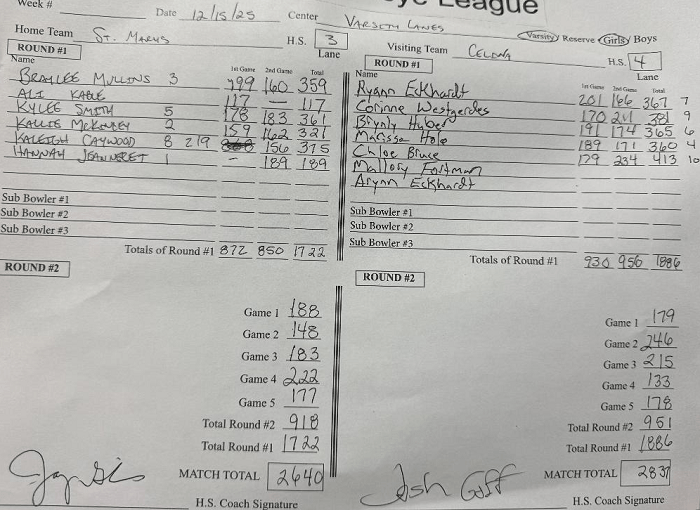 Week #
ye League
Date 12/15/25 Center VARSITY LANES
Varsity Reserve Girls Boys
Home Team ST. MARYS H.S. 3 Lane
Visiting Team CELINA H.S. 4 Lane
ROUND #1
Name 1st Game 2nd Game Total
BRAYLEE MULLINS 3 199 160 359
ALI KABLE 117 — 117
KYLEE SMITH 5 178 183 361
KALLIE McKINLEY 2 159 162 321
KALEIGH CAYWOOD 8 219 156 375
HANNAH JEANNERET 1 - 189 189
Sub Bowler #1
Sub Bowler #2
Sub Bowler #3
Totals of Round #1 872 850 1722
ROUND #1
Name 1st Game 2nd Game Total
Ryann Eckhardt 201 166 367 7
Corinne Westgerdes 170 211 381 9
Brynly Huber 191 174 365 6
Marissa Hole 189 171 360 4
Chloe Bruce 179 234 413 10
Mallory Fortman
Arynn Eckhardt
Sub Bowler #1
Sub Bowler #2
Sub Bowler #3
Totals of Round #1 930 956 1886
ROUND #2
Game 1 188
Game 2 148
Game 3 183
Game 4 222
Game 5 177
Total Round #2 918
Total Round #1 1722
MATCH TOTAL 2640
H.S. Coach Signature
ROUND #2
Game 1 179
Game 2 246
Game 3 215
Game 4 133
Game 5 178
Total Round #2 951
Total Round #1 1886
MATCH TOTAL 2837
Josh Goff
H.S. Coach Signature